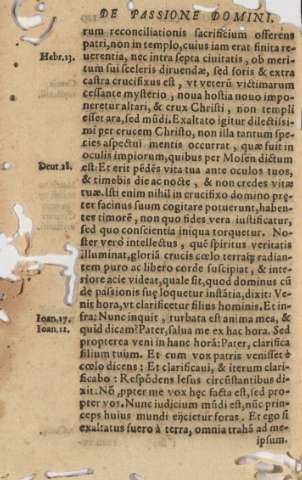 DE PASSIONE DOMINI.
rum reconciliationis sacrificium offerens
patri, non in templo, cuius iam erat finita re-
Hebr.13. uerentia, nec intra septa ciuitatis, ob meri-
tum sui sceleris diruendæ, sed foris & extra
castra crucifixus est, vt veterū victimarum
cessante mysterio, noua hostia nouo impo-
neretur altari, & crux Christi, non templi
esset ara, sed mūdi. Exaltato igitur dilectissi-
mi per crucem Christo, non illa tantum spe-
cies aspectui mentis occurrat, quæ fuit in
oculis impiorum, quibus per Mosen dictum
Deut.28. est: Et erit pēdēs vita tua ante oculos tuos,
& timebis die ac nocte, & non credes vitæ
tuæ. Isti enim nihil in crucifixo domino præ-
ter facinus suum cogitare potuerunt, haben-
tes timorē, non quo fides vera iustificatur,
sed quo conscientia iniqua torquetur. No-
ster verò intellectus, quē spiritus veritatis
illuminat, gloriā crucis cœlo terraq; radian-
tem puro ac libero corde suscipiat, & inte-
riore acie videat, quale sit, quod dominus cū
de passionis suę loqueretur instātia, dixit: Ve-
nit hora, vt clarificetur filius hominis. Et in-
Ioan.17. fra: Nunc inquit, turbata est anima mea, &
Ioan.12. quid dicam? Pater, salua me ex hac hora. Sed
propterea veni in hanc horā: Pater, clarifica
filium tuum. Et cum vox patris venisset è
cœlo dicens: Et clarificaui, & iterum clari-
ficabo: Respōdens Iesus circūstantibus di-
xit. Nō ,ppter me vox hęc facta est, sed pro-
pter vos. Nunc iudicium mūdi est, nūc prin-
ceps huius mundi eijcietur foras. Et ego si
exaltatus fuero à terra, omnia trahā ad me-
ipsum.